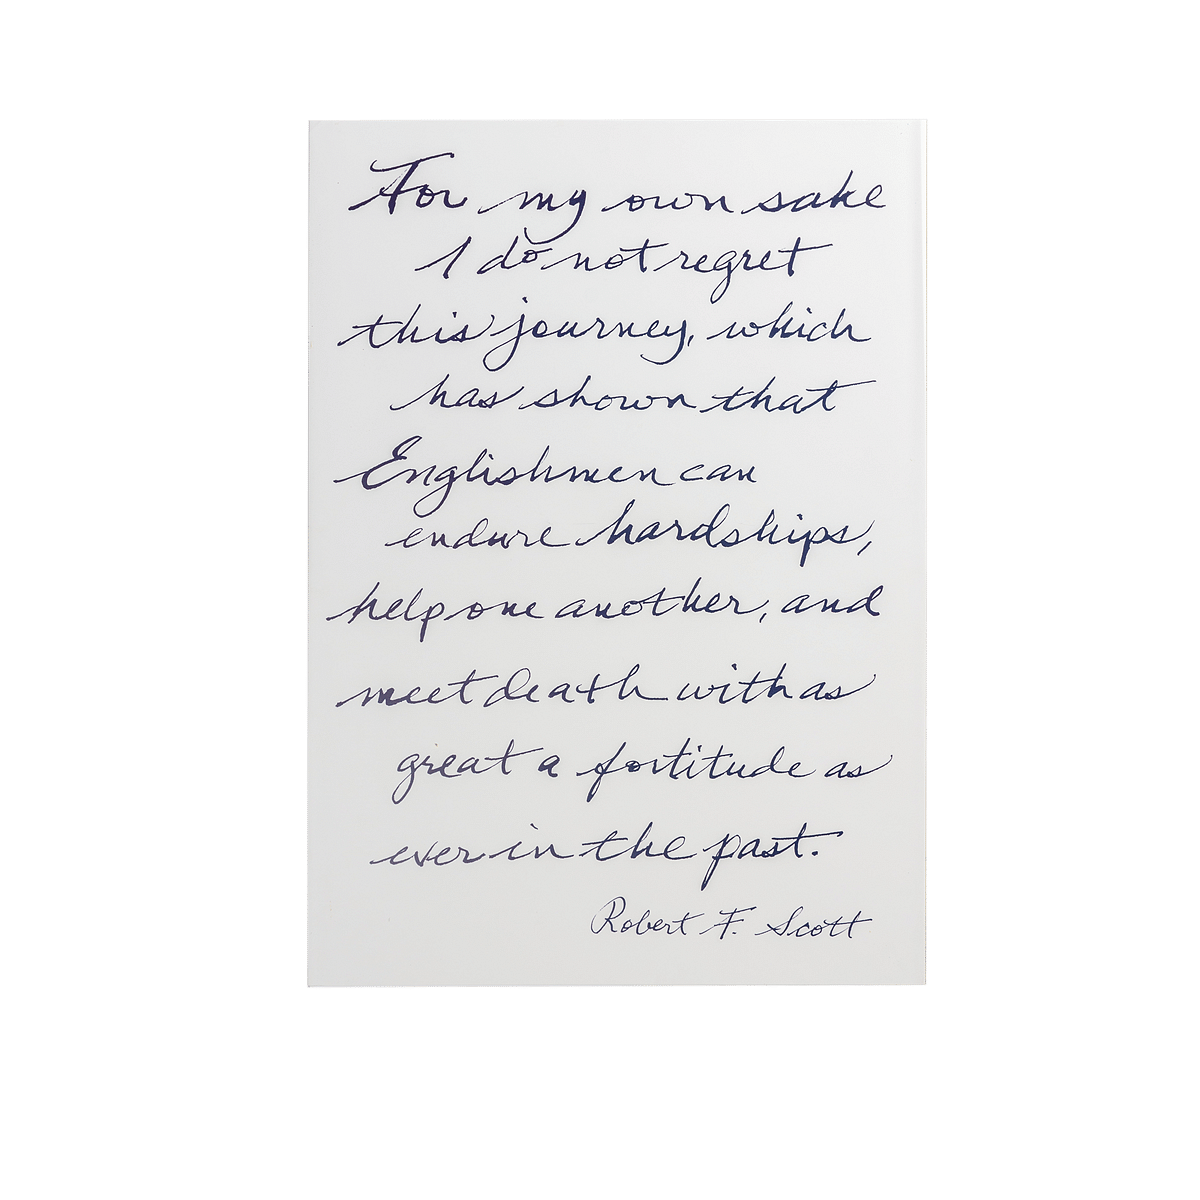 For my own sake
I do not regret
this journey, which
has shown that
Englishmen can
endure hardships,
help one another, and
meet death with as
great a fortitude as
ever in the past.
Robert F. Scott